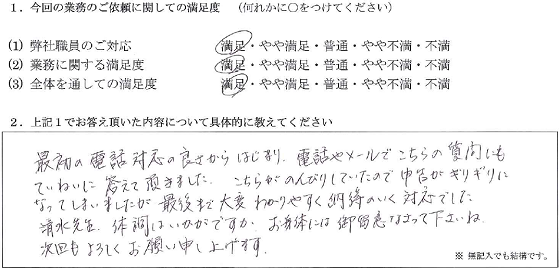 1．今回の業務のご依頼に関しての満足度　（何れかに○をつけてください）
(1) 弊社職員のご対応　満足・やや満足・普通・やや不満・不満
(2) 業務に関する満足度　満足・やや満足・普通・やや不満・不満
(3) 全体を通しての満足度　満足・やや満足・普通・やや不満・不満
2．上記1でお答え頂いた内容について具体的に教えてください
最初の電話対応の良さからはじまり、電話やメールでこちらの質問にも
ていねいに答えて頂きました。こちらがのんびりしていたので申告がギリギリに
なってしまいましたが最後まで大変わかりやすく納得のいく対応でした
清水先生、体調はいかがですか。お身体には御留意なさって下さいね。
次回もよろしくお願い申し上げます。
※ 無記入でも結構です。